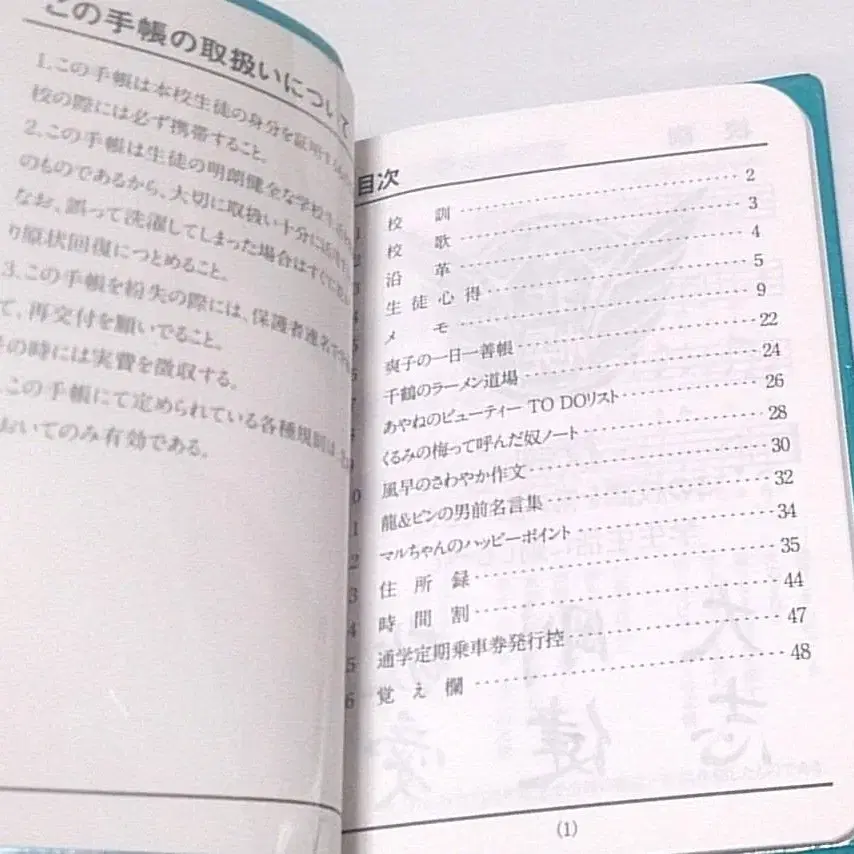 この手帳の取扱いについて
1.この手帳は本校生徒の身分を証明する
校の際には必ず携帯すること。
2.この手帳は生徒の明朗健全な学校生活
のものであるから、大切に取扱い十分に活用
なお、誤って洗濯してしまった場合はすぐに
り原状回復につとめること。
3.この手帳を紛失の際には、保護者連名で
て、再交付を願いでること。
の時には実費を徴収する。
この手帳にて定められている各種規則は
おいてのみ有効である。
目次
1 校訓 2
2 校歌 3
3 沿革 4
4 生徒心得 5
5 メモ 9
6 爽子の一日一善帳 22
7 千鶴のラーメン道場 24
8 あやねのビューティー TO DOリスト 26
9 くるみの梅って呼んだ奴ノート 28
0 風早のさわやか作文 30
1 龍&ピンの男前名言集 32
2 マルちゃんのハッピーポイント 34
3 住所録 35
4 時間割 44
5 通学定期乗車券発行控 47
6 覚え欄 48
(1)